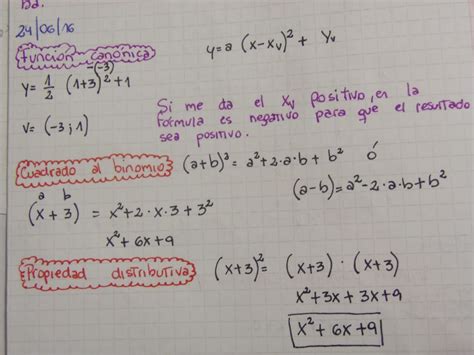 Dz.
24/06/16
función canónica
y=a (x-xᵥ)²+ Yᵥ
-(-3)
y= 1/2 (1+3)²+1
V= (-3;1)
Si me da el Xᵥ Positivo, en la
fórmula es negativo para que el resultado
sea positivo.
Cuadrado al binomio
(a+b)²= a²+2·a·b+ b² ó
(a-b)=a²-2·a·b+b²
a b
(x+3) = x²+2·x·3+3²
x²+6x+9
Propiedad distributiva
(x+3)²= (x+3)·(x+3)
x²+3x+3x+9
x²+6x+9